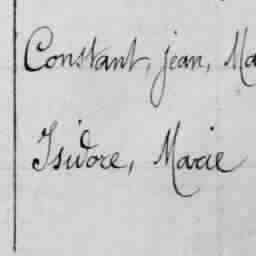 Constant, jean, Ma
Isidore, Marie